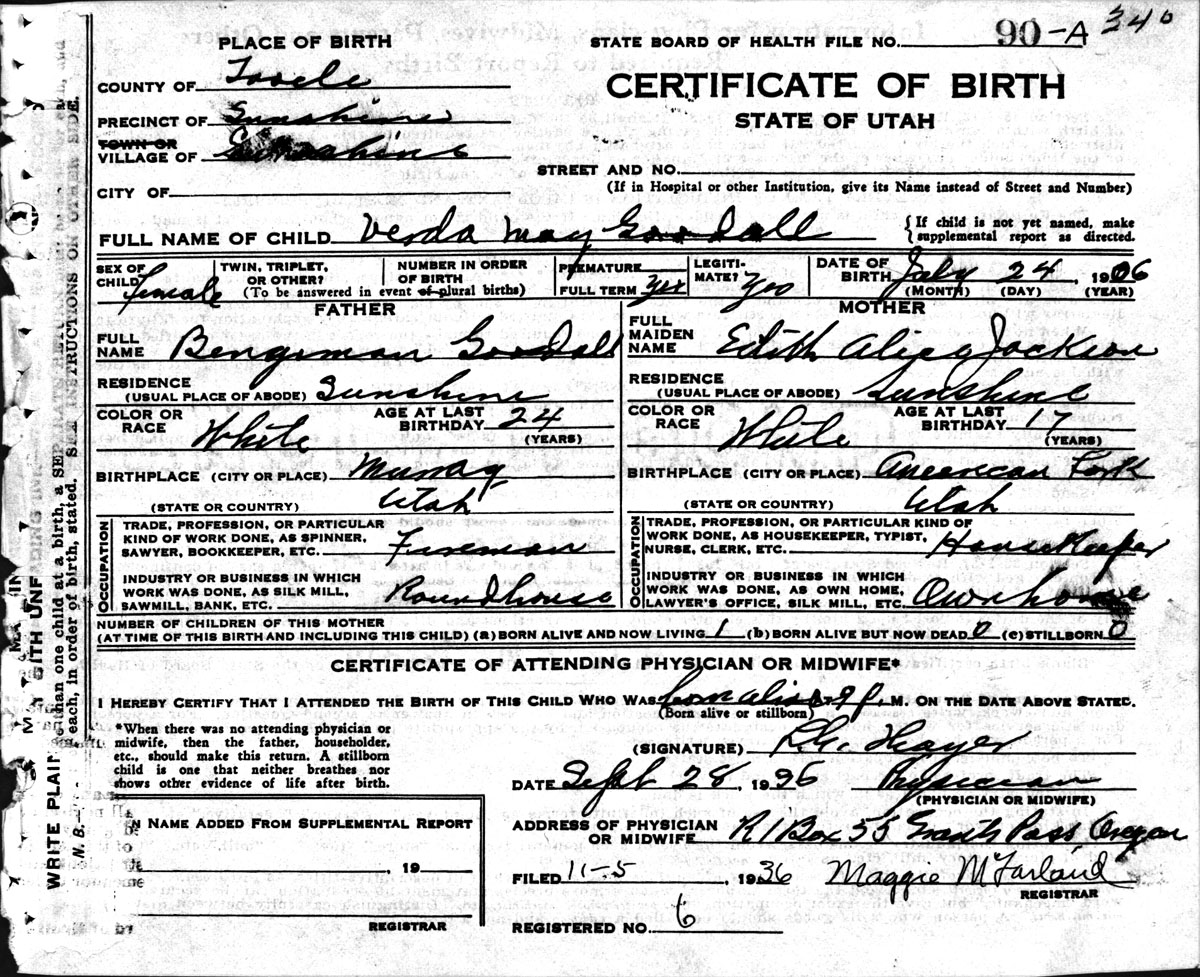 90-A 340
PLACE OF BIRTH
STATE BOARD OF HEALTH FILE NO.
COUNTY OF Tooele
CERTIFICATE OF BIRTH
PRECINCT OF Sunshine
STATE OF UTAH
TOWN OR
VILLAGE OF Sunshine
STREET AND NO.
CITY OF
(If in Hospital or other Institution, give its Name instead of Street and Number)
FULL NAME OF CHILD Verda May Goodall
{If child is not yet named, make
supplemental report as directed.
SEX OF CHILD female
TWIN, TRIPLET, OR OTHER?
NUMBER IN ORDER OF BIRTH
(To be answered in event of plural births)
PREMATURE
FULL TERM Yes
LEGITIMATE? Yes
DATE OF BIRTH July 24, 1906
(MONTH) (DAY) (YEAR)
FATHER
FULL NAME Bengiman Goodall
RESIDENCE
(USUAL PLACE OF ABODE) Sunshine
COLOR OR RACE White
AGE AT LAST BIRTHDAY 24
(YEARS)
BIRTHPLACE (CITY OR PLACE) Murray
(STATE OR COUNTRY) Utah
OCCUPATION
TRADE, PROFESSION, OR PARTICULAR
KIND OF WORK DONE, AS SPINNER,
SAWYER, BOOKKEEPER, ETC. Fireman
INDUSTRY OR BUSINESS IN WHICH
WORK WAS DONE, AS SILK MILL,
SAWMILL, BANK, ETC. Roundhouse
MOTHER
FULL MAIDEN NAME Edith Alice Jackson
RESIDENCE
(USUAL PLACE OF ABODE) Sunshine
COLOR OR RACE White
AGE AT LAST BIRTHDAY 17
(YEARS)
BIRTHPLACE (CITY OR PLACE) American Fork
(STATE OR COUNTRY) Utah
OCCUPATION
TRADE, PROFESSION, OR PARTICULAR KIND OF
WORK DONE, AS HOUSEKEEPER, TYPIST,
NURSE, CLERK, ETC. HouseKeeper
INDUSTRY OR BUSINESS IN WHICH
WORK WAS DONE, AS OWN HOME,
LAWYER'S OFFICE, SILK MILL, ETC. Own home
NUMBER OF CHILDREN OF THIS MOTHER
(AT TIME OF THIS BIRTH AND INCLUDING THIS CHILD) (a) BORN ALIVE AND NOW LIVING 1 (b) BORN ALIVE BUT NOW DEAD 0 (c) STILLBORN 0
CERTIFICATE OF ATTENDING PHYSICIAN OR MIDWIFE*
I HEREBY CERTIFY THAT I ATTENDED THE BIRTH OF THIS CHILD WHO WAS born alive 9 P. M. ON THE DATE ABOVE STATED.
(Born alive or stillborn)
*When there was no attending physician or
midwife, then the father, householder,
etc., should make this return. A stillborn
child is one that neither breathes nor
shows other evidence of life after birth.
(SIGNATURE)
DATE Sept 28, 1936 Physician
(PHYSICIAN OR MIDWIFE)
NAME ADDED FROM SUPPLEMENTAL REPORT
19
REGISTRAR
ADDRESS OF PHYSICIAN
OR MIDWIFE R 1 Box 55 Grants Pass Oregon
FILED 11-5, 1936 Maggie McFarland
REGISTRAR
REGISTERED NO. 6